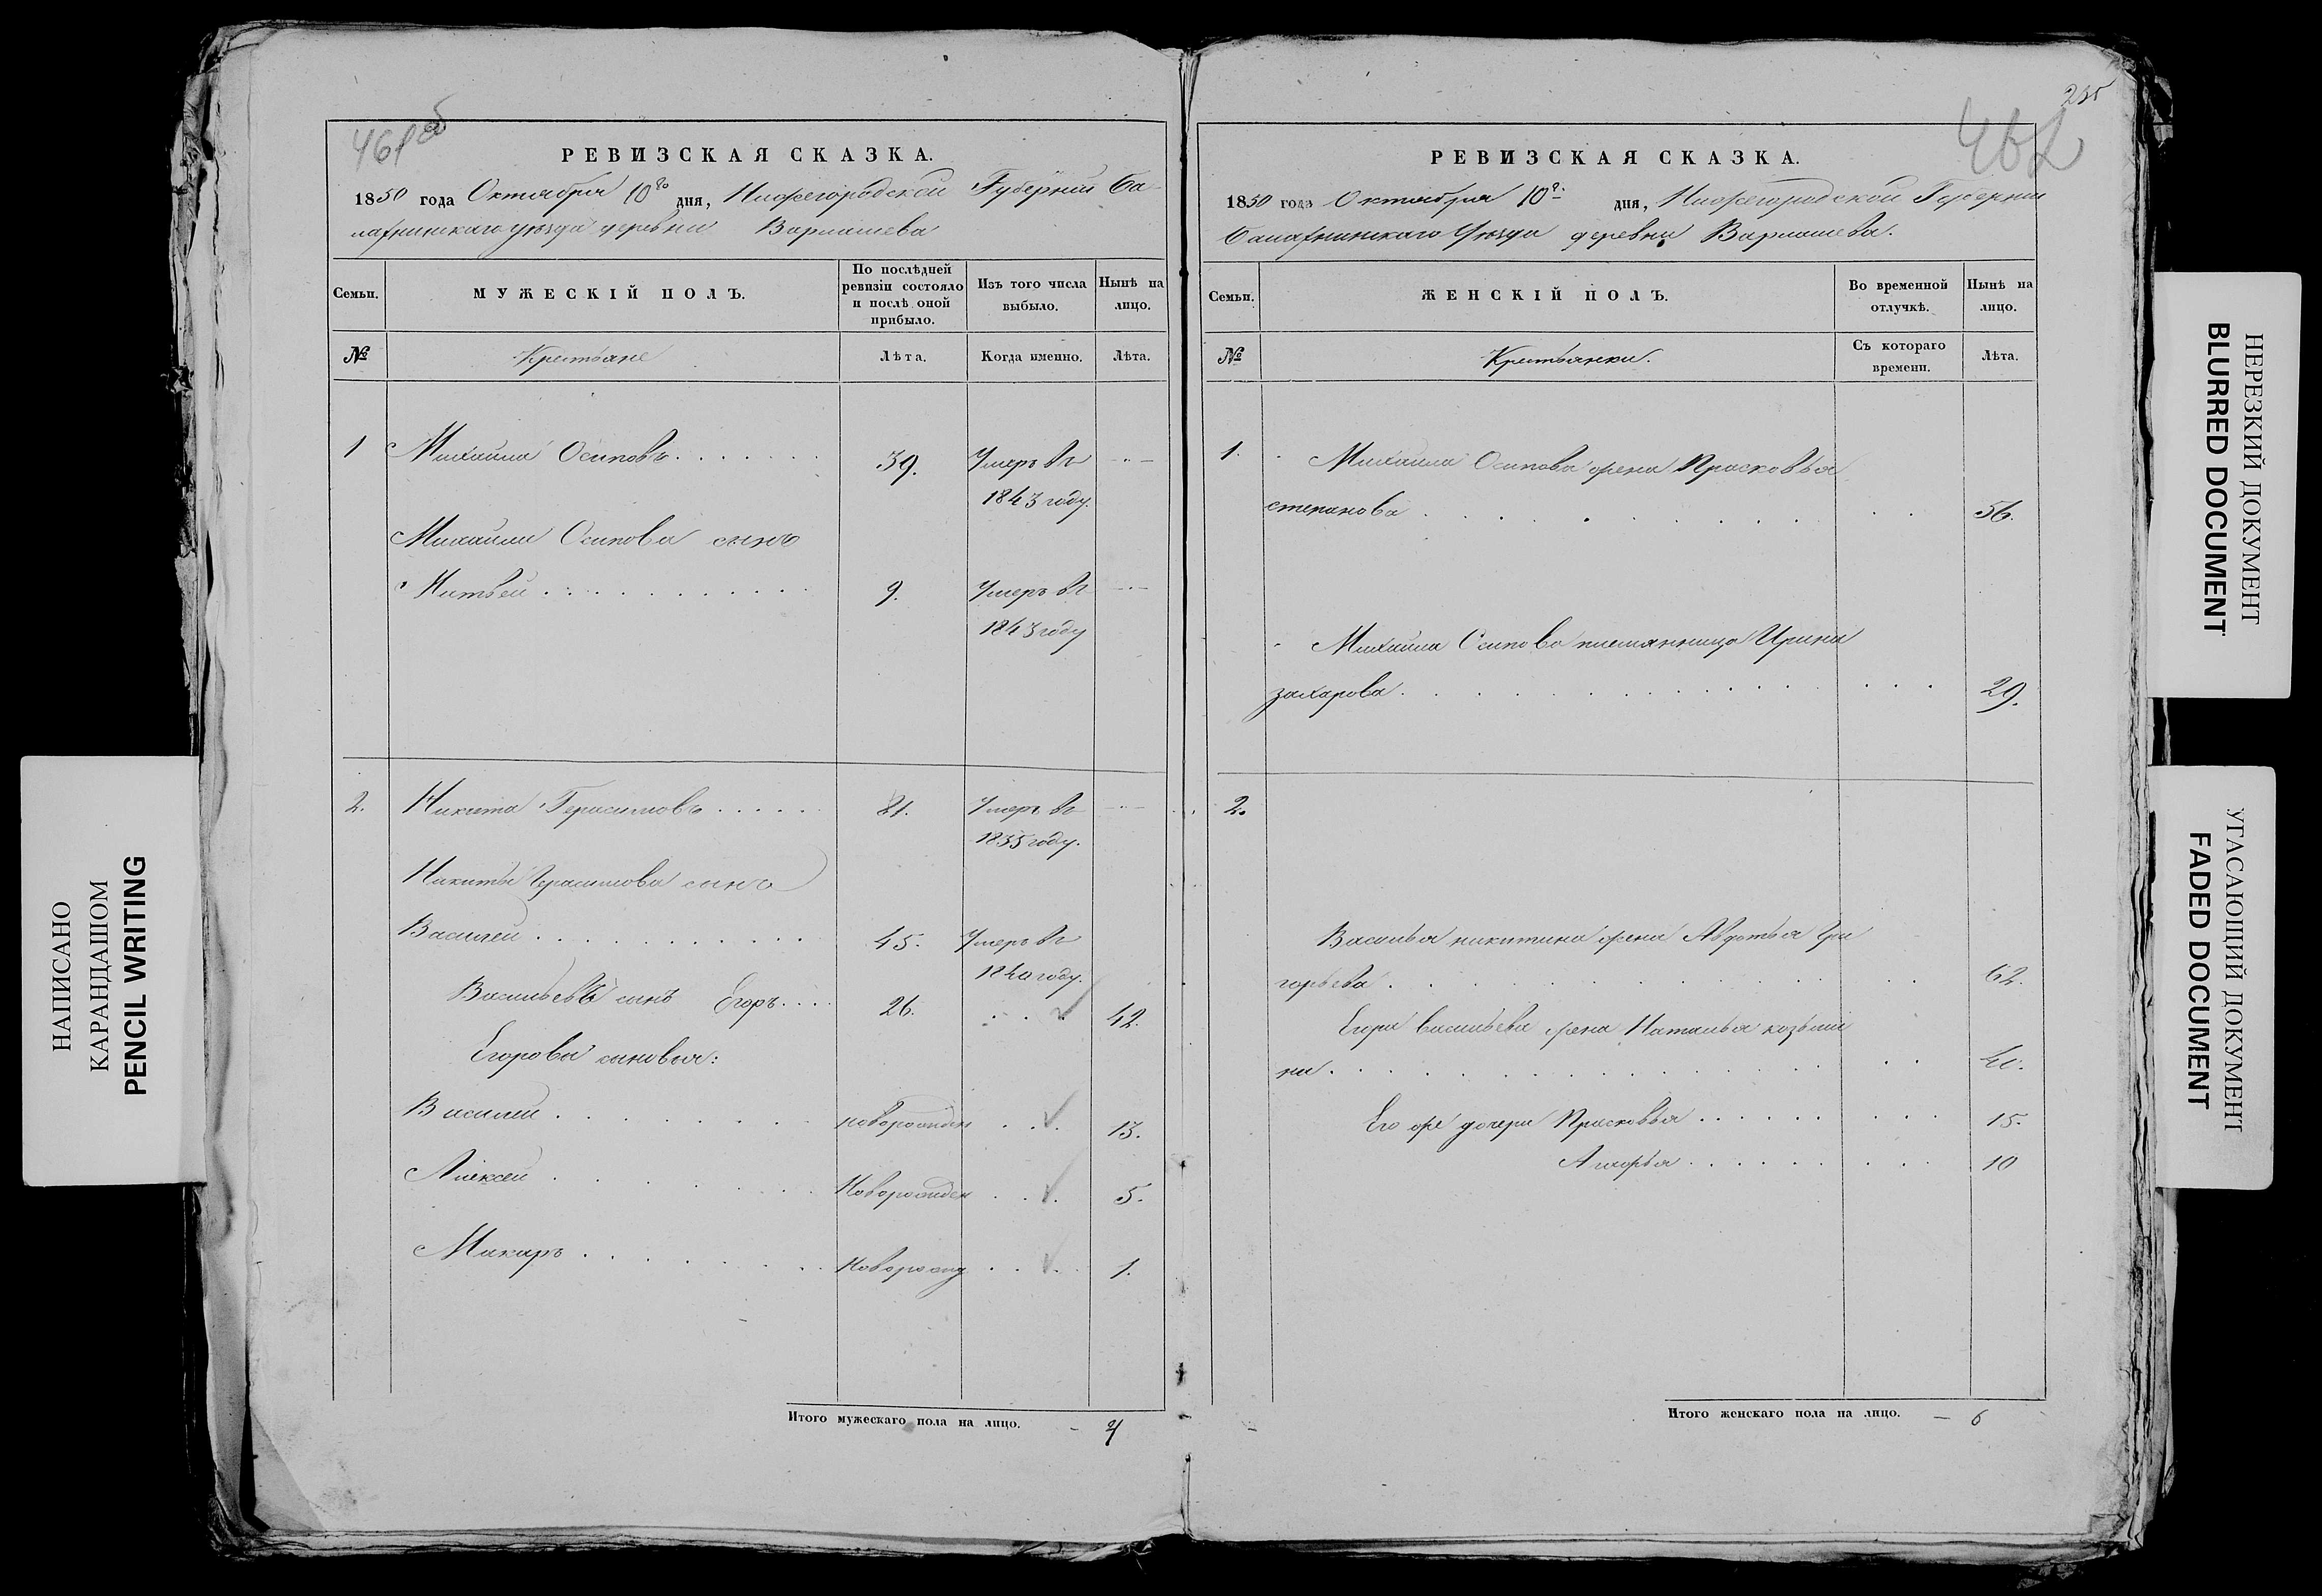 461об
РЕВИЗСКАЯ СКАЗКА.
1850 года Октября 10го дня, Нижегородской Губернии Ба-
лахнинскаго уѣзда деревни Варнашева
Семьи. МУЖЕСКІЙ ПОЛЪ. По послѣдней ревизіи состояло и послѣ оной прибыло. Изъ того числа выбыло. Нынѣ на лицо.
№ Крестьяне Лѣта. Когда именно. Лѣта.
1 Михаила Осиповъ 39. Умеръ въ
1843 году.
Михаили Осипова сынъ
Матвеи 9. Умеръ въ
1843 году
2. Никита Герасимовъ 81. Умеръ въ
1835 году.
Никиты Герасимова сынъ
Василеи 45. Умеръ въ
1840 году.
Васильевъ сынъ Егоръ 26. 42.
Егоровы сыновья:
Василеи новорожден 13.
Алексеи Новорожден 5.
Макаръ Новорожд 1.
Итого мужескаго пола на лицо. - 4
235
462
РЕВИЗСКАЯ СКАЗКА.
1850 года Октября 10г. дня, Нижегородской Губернии
Балахнинскаго Уѣзда деревни Варнашева.
Семьи. ЖЕНСКІЙ ПОЛЪ. Во временной отлучкѣ. Нынѣ на лицо.
№ Крестьянки. Съ котораго времени. Лѣта.
1. Михаила Осипова жена Прасковья
степанова 56.
Михаила Осипова племянница Ирина
захарова 29.
2.
Василья никитина жена Авдотья Гри
горьева 62.
Егора васильева жена Наталья козьми
на 40.
Его же дочери Прасковья 15.
10
Итого женскаго пола на лицо. — 6
НАПИСАНО
КАРАНДАШОМ
PENCIL WRITING
НЕРЕЗКИЙ ДОКУМЕНТ
BLURRED DOCUMENT
УГАСАЮЩИЙ ДОКУМЕНТ
FADED DOCUMENT